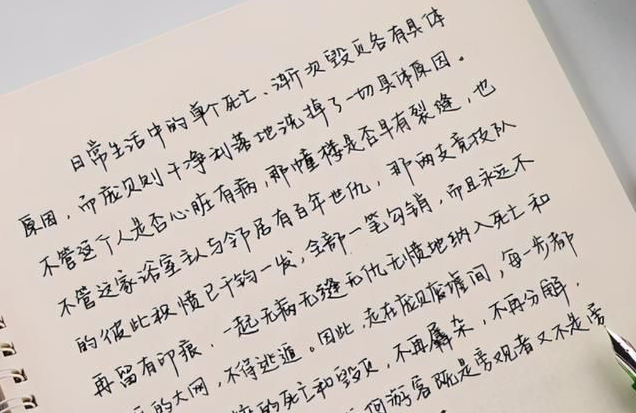 日常生活中的单个死亡、渐次毁灭各有具体
原因,而庞贝则干净利落地洗掉了一切具体原因。
不管这个人是否心脏有病,那幢楼是否早有裂缝,也
不管这家浴室主人与邻居有百年世仇,那两支竞技队
的彼此积愤已千钧一发,全部一笔勾销,而且永远不
再留有印痕,一起无病无缝无仇无愤地纳入死亡和
的大网,不得逃遁。因此,走在庞贝废墟间,每一步都
的死亡和毁灭,不再羼杂,不再分解,
何游客既是旁观者又不是旁